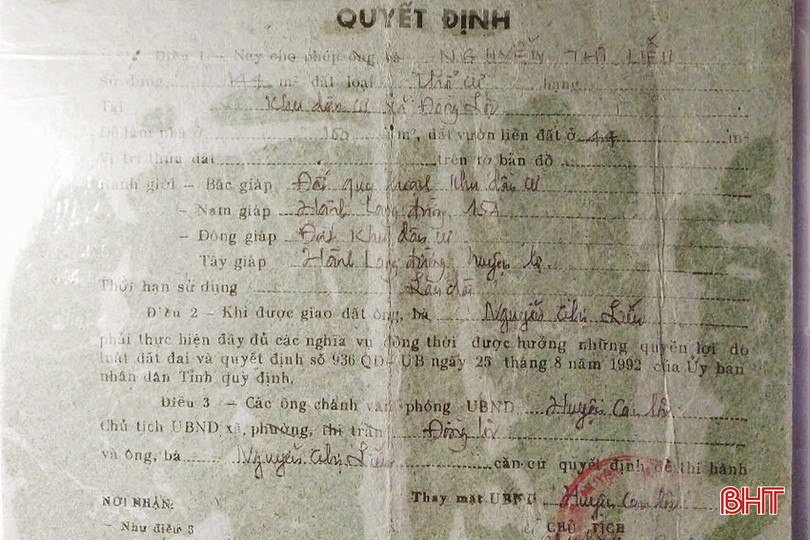 QUYẾT ĐỊNH
Điều 1 – Nay cho phép ông bà NGUYỄN THỊ LIỄU
Sử dụng 144 m² đất loại Thổ cư hạng
Tại Khu dân cư xã Đồng Lộc
Để làm nhà ở m², đất vườn liền đất ở m²
Vị trí thửa đất trên tờ bản đồ
Ranh giới – Bắc giáp Đất quy hoạch khu dân cư
– Nam giáp Hành lang đường 15A
– Đông giáp Đất khu dân cư
Tây giáp Hành lang đường huyện lộ
Thời hạn sử dụng Lâu dài
Điều 2 – Khi được giao đất ông, bà Nguyễn Thị Liễu
phải thực hiện đầy đủ các nghĩa vụ đồng thời được hưởng những quyền lợi do
luật đất đai và quyết định số 936 QĐ-UB ngày 25 tháng 8 năm 1992 của Ủy ban
nhân dân Tỉnh quy định.
Điều 3 – Các ông chánh văn phòng UBND Huyện Can Lộc
Chủ tịch UBND xã, phường, thị trấn Đồng Lộc
và ông, bà Nguyễn Thị Liễu căn cứ quyết định để thi hành
NƠI NHẬN: Thay mặt UBND Huyện Can Lộc
– Như điều 3 CHỦ TỊCH
BHT